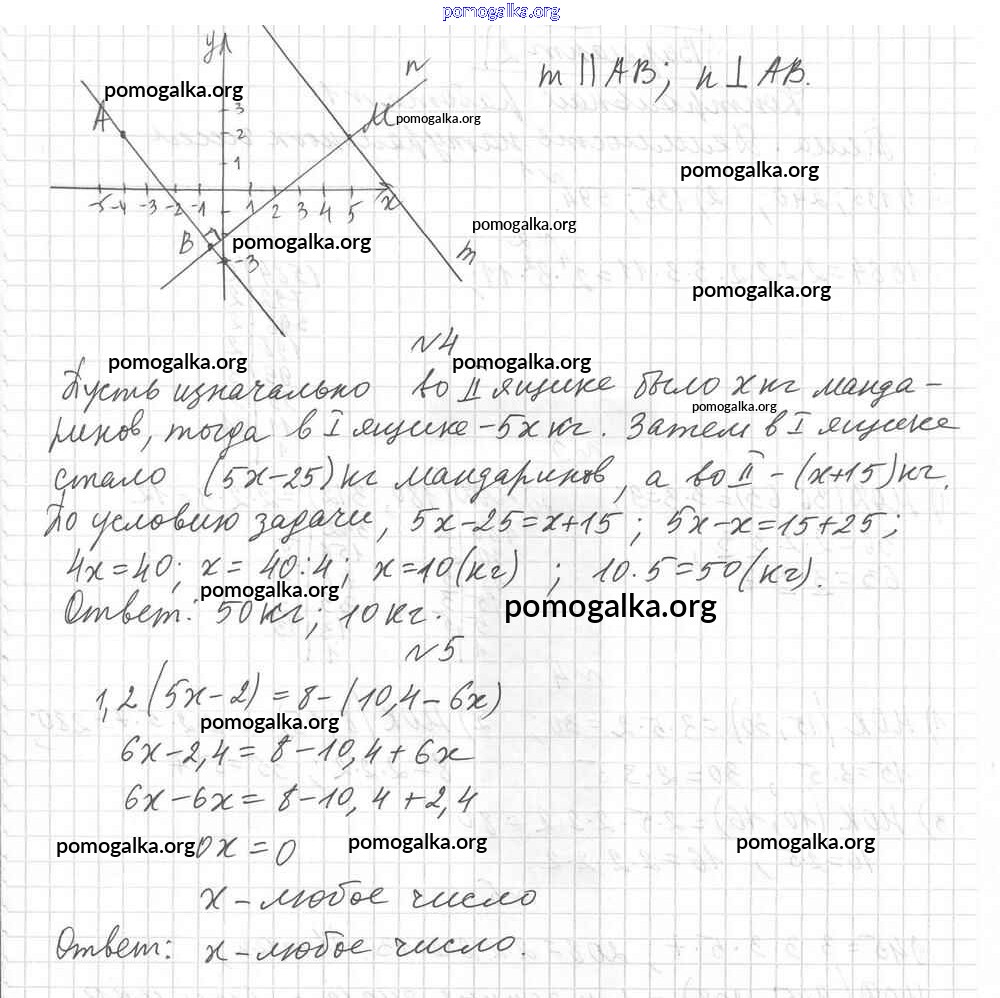 pomogalka.org
y n m || AB; n ⊥ AB.
pomogalka.org
A 3 M pomogalka.org
2
1 pomogalka.org
-5 -4 -3 -2 -1 1 2 3 4 5 x
pomogalka.org
B pomogalka.org m
-3
pomogalka.org
№4
pomogalka.org pomogalka.org
Пусть изначально во II ящике было x кг манда-
pomogalka.org
ринов, тогда в I ящике - 5x кг. Затем в I ящике
стало (5x-25) кг мандаринов, а во II - (x+15) кг.
По условию задачи, 5x-25=x+15; 5x-x=15+25;
4x=40; x= 40:4; x=10(кг) ; 10·5=50(кг).
pomogalka.org pomogalka.org
Ответ: 50кг; 10кг.
№5
1,2(5x-2)=8-(10,4-6x)
pomogalka.org
6x-2,4=8-10,4+6x
6x-6x=8-10,4+2,4
pomogalka.org 0x=0 pomogalka.org pomogalka.org
x-любое число
Ответ: x-любое число.